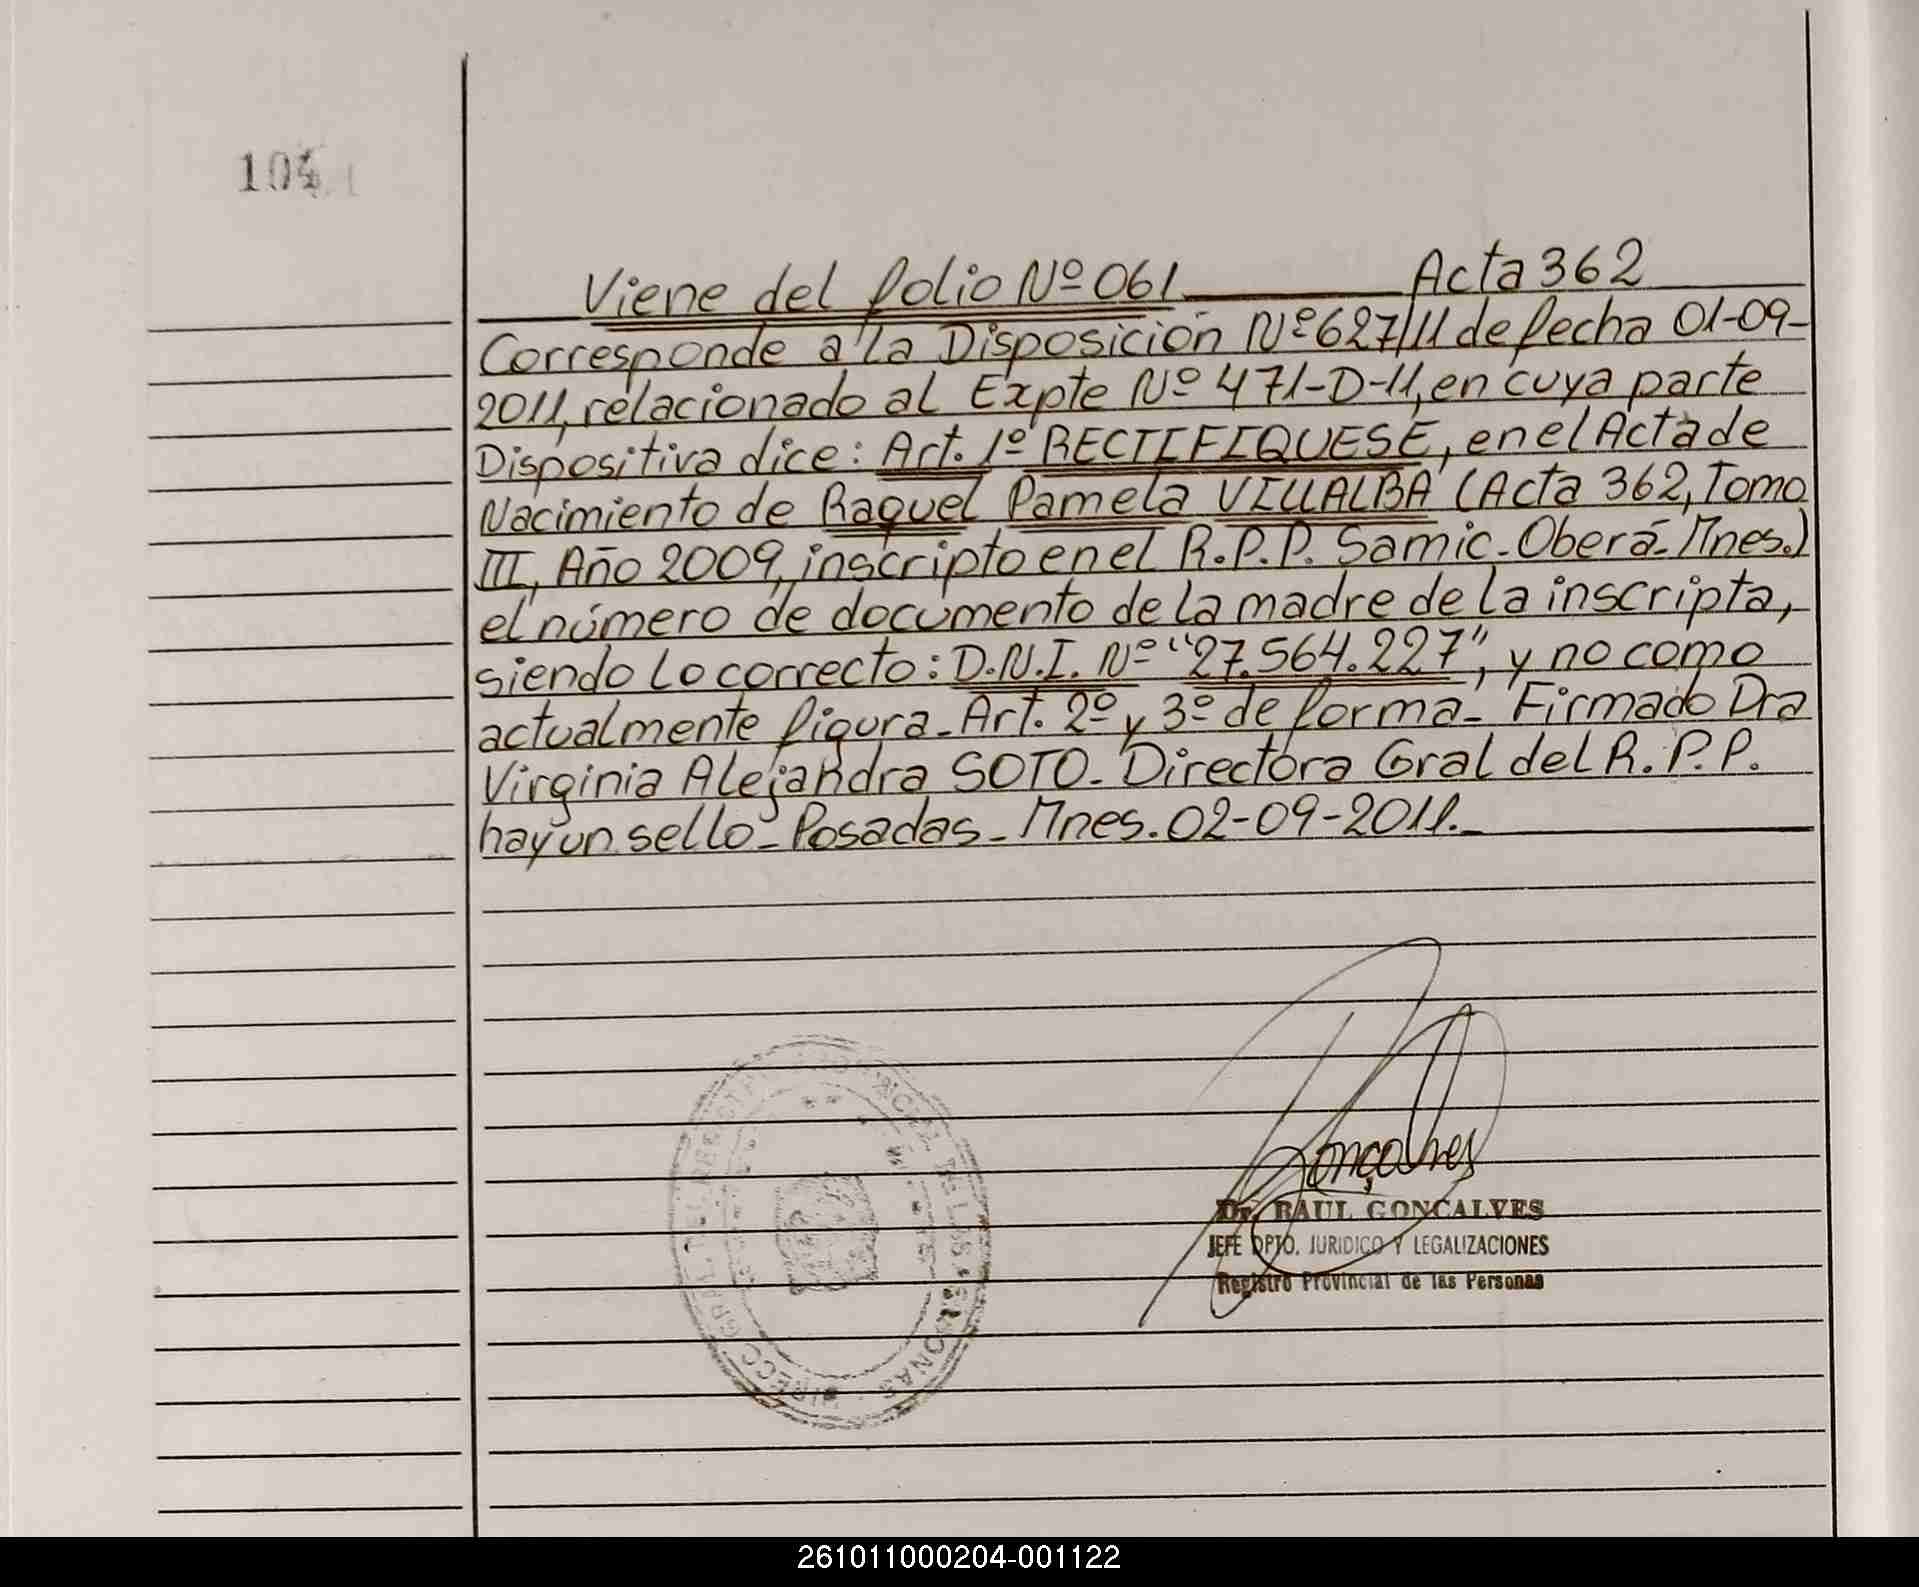 104
Viene del folio Nº 061 Acta 362
Corresponde a la Disposición Nº 627/11 de fecha 01-09-
2011, relacionado al Expte Nº 471-D-11, en cuya parte
Dispositiva dice: Art. 1º RECTIFIQUESE, en el Acta de
Nacimiento de Raquel Pamela VILLALBA (Acta 362, Tomo
III, Año 2009, inscripto en el R.P.P. Samic - Oberá - Mnes.)
el número de documento de la madre de la inscripta,
siendo lo correcto: D.N.I. Nº "27.564.227", y no como
actualmente figura - Art. 2º y 3º de forma - Firmado Dra
Virginia Alejandra SOTO - Directora Gral del R.P.P.
hay un sello - Posadas - Mnes. 02-09-2011.-
DIRECC. GRAL. DEL REGISTRO PROVINCIAL DE LAS PERSONAS
Gonçalves
Dr. RAUL GONCALVES
JEFE DPTO. JURIDICO Y LEGALIZACIONES
Registro Provincial de las Personas
261011000204-001122